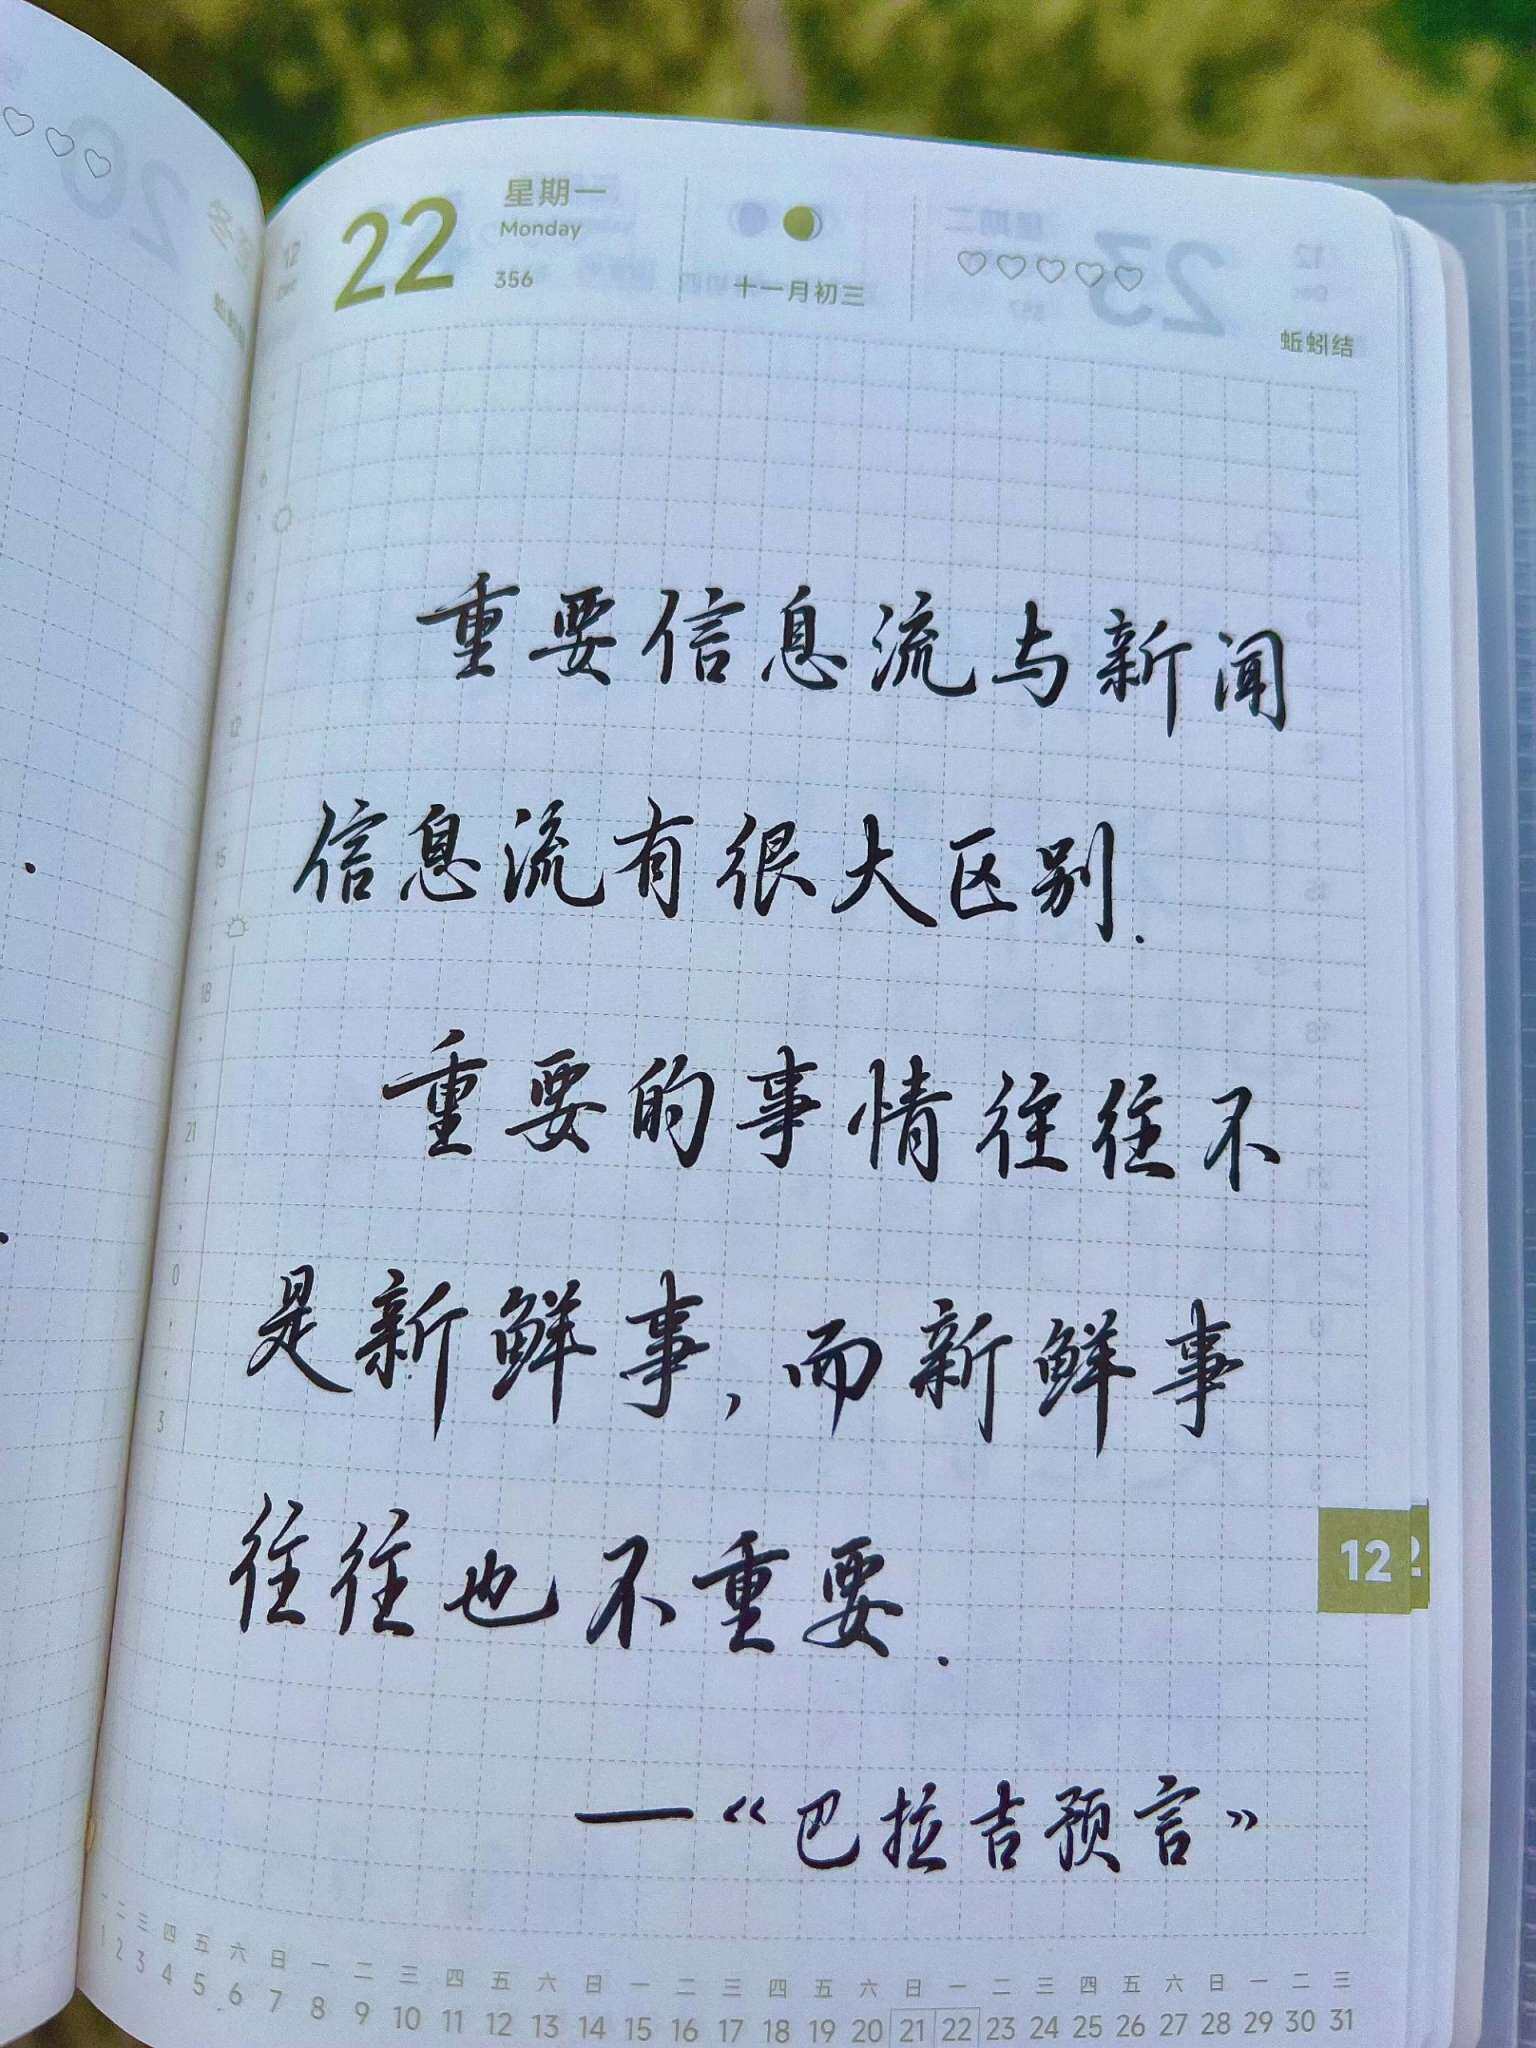 22
星期一
Monday
356
十一月初三
蚯蚓结
重要信息流与新闻
信息流有很大区别.
重要的事情往往不
是新鲜事,而新鲜事
往往也不重要.
—《巴拉吉预言》
12
一 二 三 四 五 六 日 一 二 三 四 五 六 日 一 二 三 四 五 六 日 一 二 三 四 五 六 日 一 二 三
1 2 3 4 5 6 7 8 9 10 11 12 13 14 15 16 17 18 19 20 21 22 23 24 25 26 27 28 29 30 31